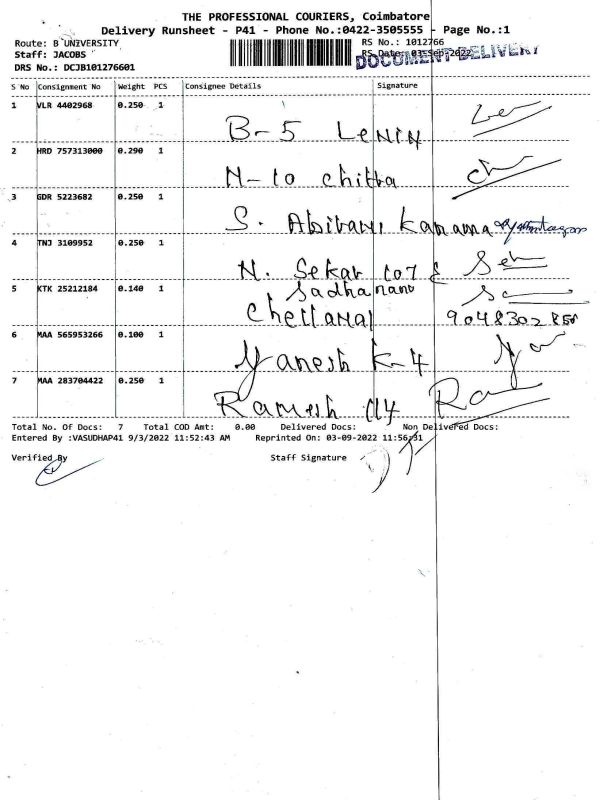 THE PROFESSIONAL COURIERS, Coimbatore
Delivery Runsheet - P41 - Phone No.:0422-3505555 - Page No.:1
Route: B UNIVERSITY
RS No.: 1012766
Staff: JACOBS
RS Date: 03-Sep-2022
DOCUMENT DELIVERY
DRS No.: DCJB101276601
S No Consignment No Weight PCS Consignee Details Signature
1 VLR 4402968 0.250 1
B-5 LENIN
2 HRD 757313000 0.290 1
N-10 chitta
3 GDR 5223682 0.250 1
S. Abirami
4 TNJ 3109952 0.250 1
N. Sekar
5 KTK 25212184 0.140 1
6 MAA 565953266 0.100 1
Yanesh K-4
7 MAA 283704422 0.250 1
Ramesh
Total No. Of Docs: 7 Total COD Amt: 0.00 Delivered Docs: Non Delivered Docs:
Entered By :VASUDHAP41 9/3/2022 11:52:43 AM Reprinted On: 03-09-2022 11:56:31
Verified By Staff Signature